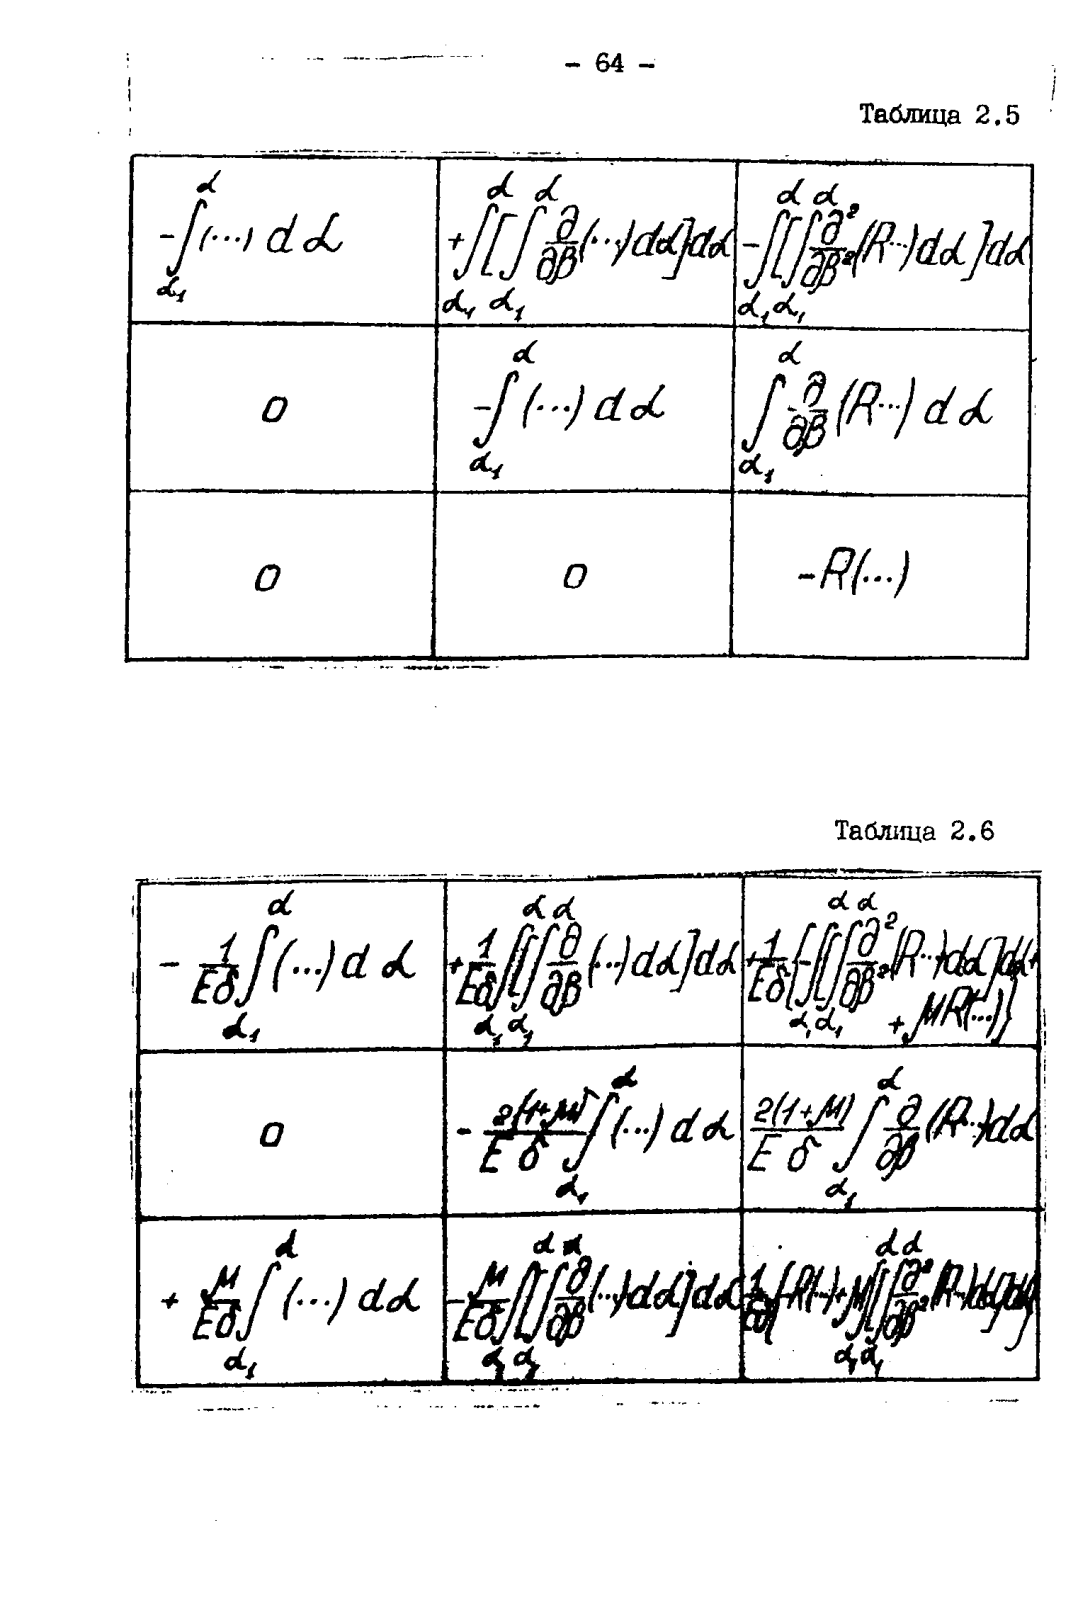 - 64 -
Таблица 2.5
$-\int_{\alpha_1}^{\alpha}(\cdots)\,d\alpha$ | $+\int_{\alpha_1}^{\alpha}\left[\int_{\alpha_1}^{\alpha}\frac{\partial}{\partial\beta}(\cdots)d\alpha\right]d\alpha$ | $-\int_{\alpha_1}^{\alpha}\left[\int_{\alpha_1}^{\alpha}\frac{\partial^2}{\partial\beta^2}(R\cdots)d\alpha\right]d\alpha$
0 | $-\int_{\alpha_1}^{\alpha}(\cdots)\,d\alpha$ | $\int_{\alpha_1}^{\alpha}\frac{\partial}{\partial\beta}(R\cdots)\,d\alpha$
0 | 0 | $-R(\cdots)$
Таблица 2.6
$-\frac{1}{E\delta}\int_{\alpha_1}^{\alpha}(\cdots)\,d\alpha$ | $+\frac{1}{E\delta}\int_{\alpha_1}^{\alpha}\left[\int_{\alpha_1}^{\alpha}\frac{\partial}{\partial\beta}(\cdots)d\alpha\right]d\alpha$ | $+\frac{1}{E\delta}\left\{-\int_{\alpha_1}^{\alpha}\left[\int_{\alpha_1}^{\alpha}\frac{\partial^2}{\partial\beta^2}(R\cdots)d\alpha\right]d\alpha+\right.$
$\left.+\mu R(\cdots)\right\}$
0 | $-\frac{2(1+\mu)}{E\delta}\int_{\alpha_1}^{\alpha}(\cdots)\,d\alpha$ | $\frac{2(1+\mu)}{E\delta}\int_{\alpha_1}^{\alpha}\frac{\partial}{\partial\beta}(R\cdots)d\alpha$
$+\frac{\mu}{E\delta}\int_{\alpha_1}^{\alpha}(\cdots)\,d\alpha$ | $-\frac{\mu}{E\delta}\int_{\alpha_1}^{\alpha}\left[\int_{\alpha_1}^{\alpha}\frac{\partial}{\partial\beta}(\cdots)d\alpha\right]d\alpha$ | $\frac{1}{E\delta}\left\{-R(\cdots)+\mu\int_{\alpha_1}^{\alpha}\left[\int_{\alpha_1}^{\alpha}\frac{\partial^2}{\partial\beta^2}(R\cdots)d\alpha\right]d\alpha\right\}$